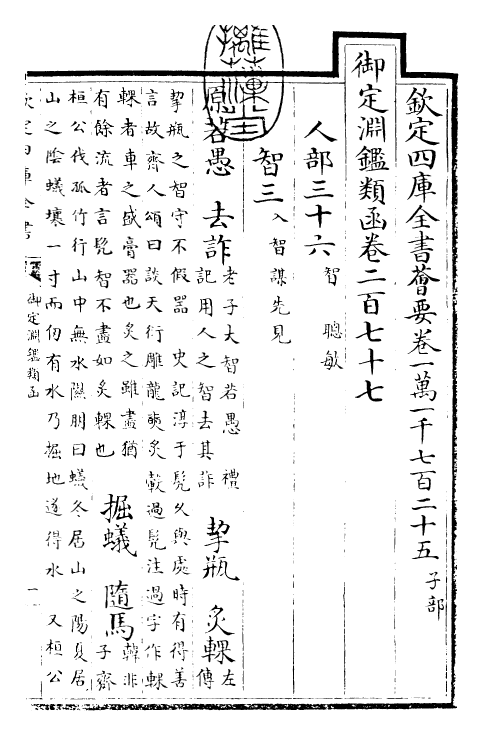 欽定四庫全書薈要卷一萬一千七百二十五 子部
御定淵鑑類函卷二百七十七
人部三十六 智 聰敏
智三 入智謀先見
原若愚 去詐 老子大智若愚 禮
記用人之智去其詐 挈瓶 炙輠 左
傳
挈瓶之智守不假器 史記淳于髡久與處時有得善
言故齊人頌曰談天衍雕龍奭炙轂過髡注過字作輠
輠者車之盛膏器也炙之雖盡猶
有餘流者言髡智不盡如炙輠也 掘蟻 隨馬 韓非
子齊
桓公伐孤竹行山中無水隰朋曰蟻冬居山之陽夏居
山之陰蟻壤一寸而仞有水乃掘地遂得水 又桓公
欽定四庫全書 御定淵鑑類函 一